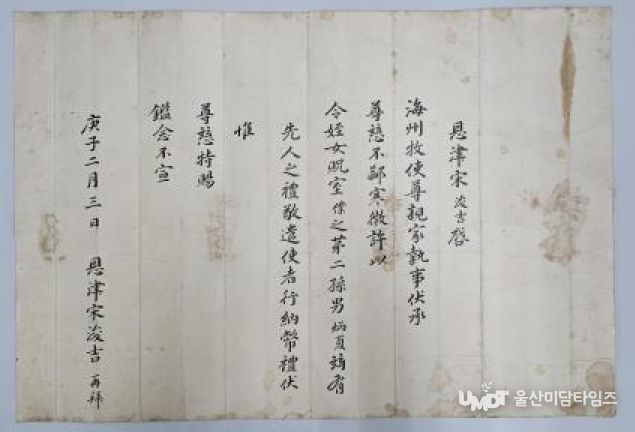 恩津宋浚吉啓
海州牧使尊親家執事伏承
尊慈不鄙寒微許以
令姪女貺室僕之第二孫男炳夏玆有
先人之禮敬遣使者行納幣禮伏
惟
尊慈特賜
鑑念不宣
庚子二月三日 恩津宋浚吉 再拜
UMDT 울산미담타임즈